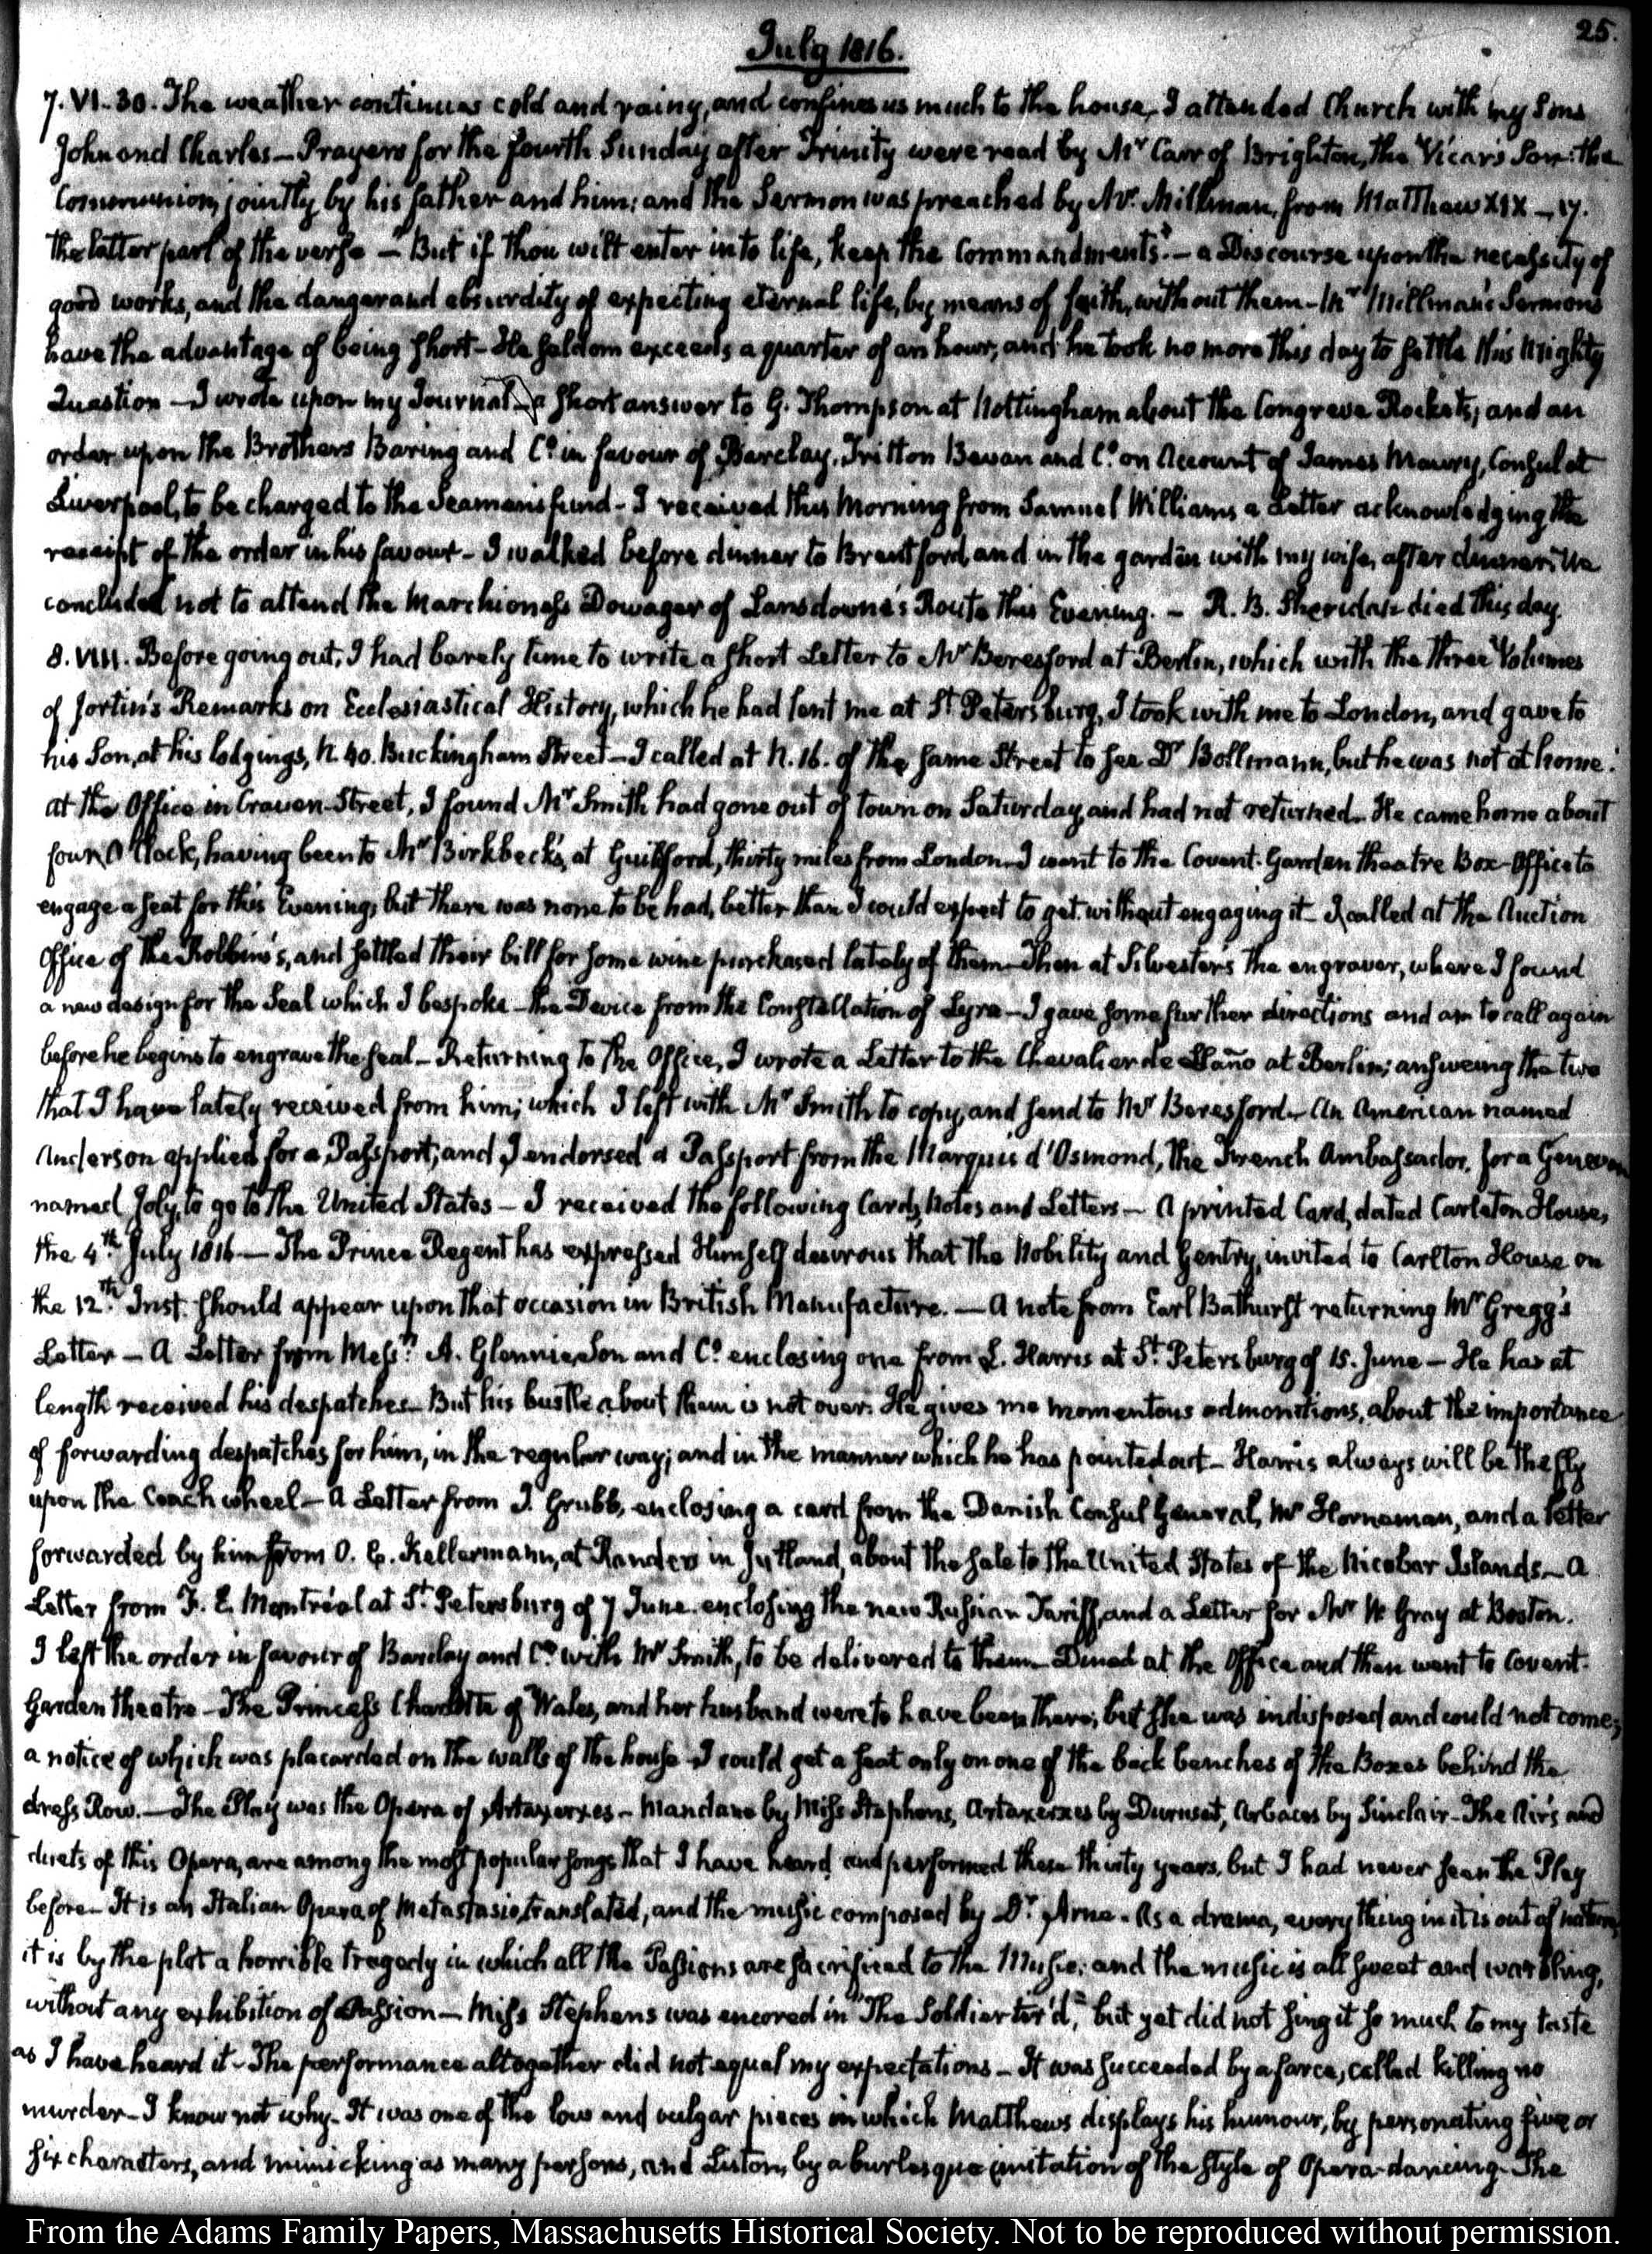 25.
July 1816.
7. VI-30. The weather continues cold and rainy, and confines us much to the house, I attended Church with my Sons
John and Charles — Prayers for the fourth Sunday after Trinity were read by Mr Carr of Brighton, the Vicar's Son: the
Communion, jointly by his father and him: and the Sermon was preached by Mr. Millman, from Matthew XIX — 17.
the latter part of the verse — "But if thou wilt enter into life, keep the Commandments." — a Discourse upon the necessity of
good works, and the danger and absurdity of expecting eternal life, by means of faith, without them — Mr Millman's Sermons
have the advantage of being short — He seldom exceeds a quarter of an hour, and he took no more this day to settle this mighty
Question — I wrote upon my Journal, a short answer to G. Thompson at Nottingham about the Congreve Rockets; and an
order upon the Brothers Baring and Co. in favour of Barclay, Tritton Bevan and Co. on Account of James Maury, Consul at
Liverpool, to be charged to the Seamen's fund — I received this Morning from Samuel Williams a Letter acknowledging the
receipt of the order in his favour — I walked before dinner to Brentford, and in the garden with my wife, after dinner. We
concluded not to attend the Marchioness Dowager of Lansdowne's Route this Evening. — R. B. Sheridan died this day.
8. VIII. Before going out, I had barely time to write a short Letter to Mr Beresford at Berlin, which with the three Volumes
of Jortin's Remarks on Ecclesiastical History, which he had lent me at St Petersburg, I took with me to London, and gave to
his Son, at his lodgings, N. 40. Buckingham Street — I called at N. 16. of the same Street to see Dr Bollmann, but he was not at home.
at the Office in Craven Street, I found Mr Smith had gone out of town on Saturday, and had not returned. He came home about
four O'Clock, having been to Mr Birkbeck's, at Guilford, thirty miles from London. I went to the Covent-Garden theatre Box-Office to
engage a seat for this Evening, but there was none to be had, better than I could expect to get without engaging it — I called at the Auction
Office of the Robbins's, and settled their bill for some wine purchased lately of them — Then at Silvester's the engraver, where I found
a new design for the Seal which I bespoke — the Device from the Constellation of Lyra — I gave some further directions and am to call again
before he begins to engrave the seal — Returning to the Office, I wrote a Letter to the Chevalier de Llaño at Berlin; answering the two
that I have lately received from him; which I left with Mr Smith to copy, and send to Mr Beresford — An American named
Anderson applied for a Passport; and I endorsed a Passport from the Marquis d'Osmond, the French Ambassador, for a Genevan
named Joly, to go to the United States — I received the following Cards, Notes and Letters — A printed Card, dated Carleton House,
the 4th July 1816 — The Prince Regent has expressed Himself desirous that the Nobility and Gentry, invited to Carlton House on
the 12th Inst. should appear upon that occasion in British Manufacture. — A note from Earl Bathurst returning Mr Gregg's
Letter — A Letter from Messrs A. Glennie, Son and Co. enclosing one from L. Harris at St. Petersburg of 15. June — He has at
length received his despatches — But his bustle about them is not over. He gives me momentous admonitions, about the importance
of forwarding despatches for him, in the regular way; and in the manner which he has pointed out — Harris always will be the fly
upon the Coach wheel — A Letter from J. Grubb, enclosing a card from the Danish Consul General, Mr Horneman, and a letter
forwarded by him from O. C. Kellermann, at Randers in Jutland, about the sale to the United States of the Nicobar Islands — A
Letter from F. E. Montréal at St. Petersburg of 7 June enclosing the new Russian Tariff, and a Letter for Mr W. Gray at Boston.
I left the order in favour of Barclay and Co. with Mr Smith, to be delivered to them — Dined at the Office and then went to Covent-
Garden theatre — The Princess Charlotte of Wales, and her husband were to have been there, but she was indisposed and could not come;
a notice of which was placarded on the walls of the house — I could get a seat only on one of the back benches of the Boxes behind the
dress Row. — The Play was the Opera of Artaxerxes — Mandane by Miss Stephens, Artaxerxes by Duruset, Arbaces by Sinclair — The Airs and
duets of this Opera, are among the most popular songs that I have heard and performed these thirty years, but I had never seen the Play
before — It is an Italian Opera of Metastasio, translated, and the music composed by Dr. Arne. As a drama, every thing in it is out of nature,
it is by the plot a horrible tragedy in which all the Passions are sacrificed to the Music; and the music is all sweet and warbling,
without any exhibition of Passion — Miss Stephens was encored in "The Soldier tir'd," but yet did not sing it so much to my taste
as I have heard it — The performance altogether did not equal my expectations — It was succeeded by a farce, called killing no
murder — I know not why — It was one of the low and vulgar pieces in which Matthews displays his humour, by personating five or
six characters, and mimicking as many persons, and Liston, by a burlesque imitation of the style of Opera-dancing — The
From the Adams Family Papers, Massachusetts Historical Society. Not to be reproduced without permission.